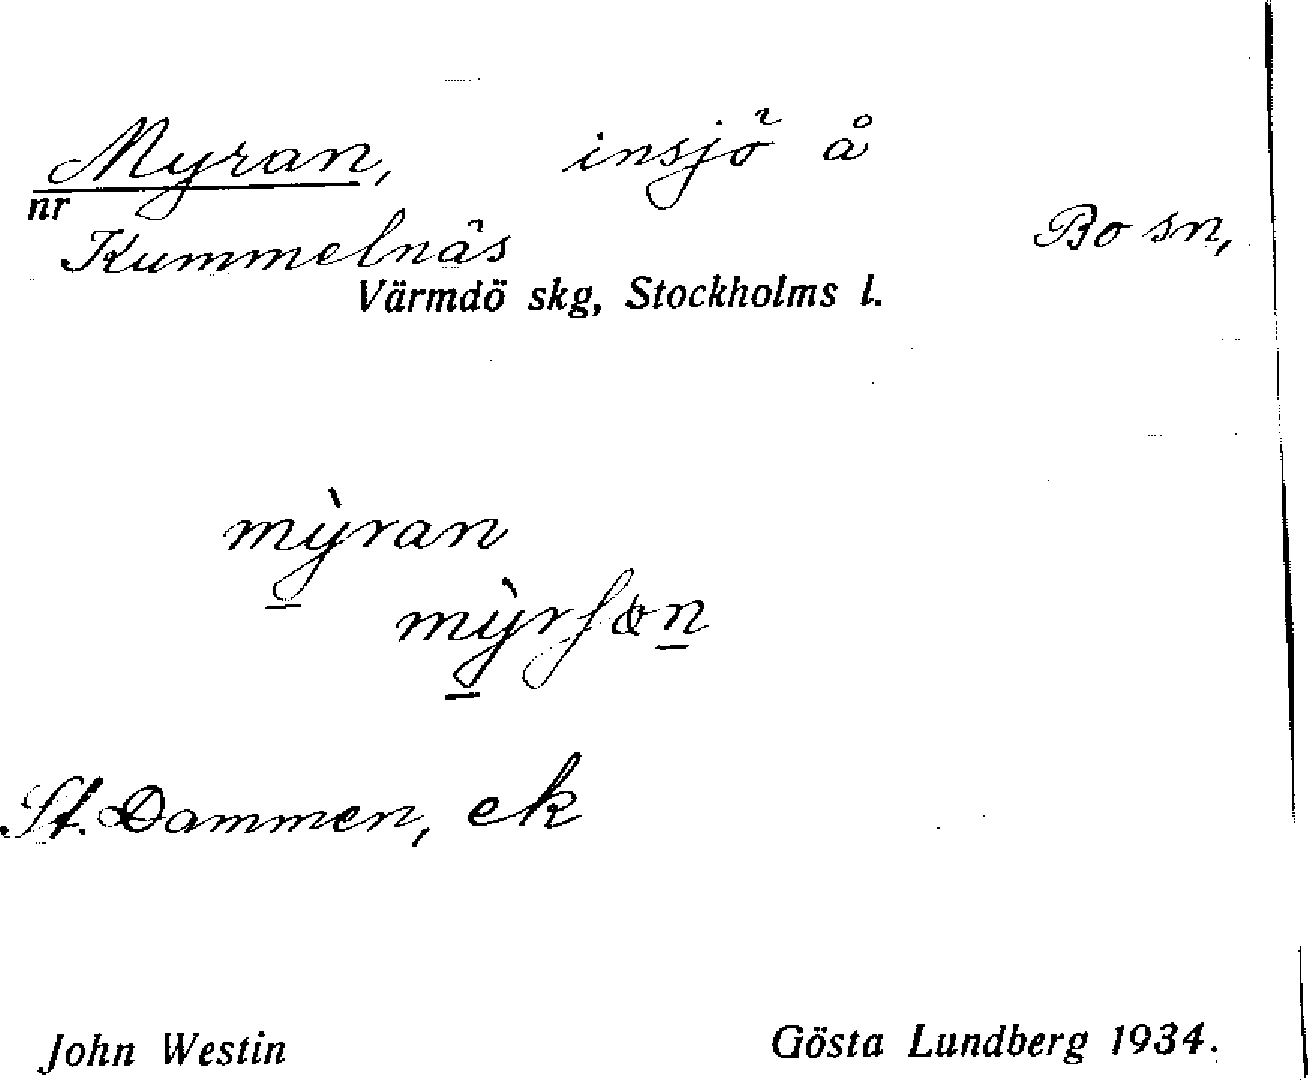 Myran, insjö å
nr
Kummelnäs Bo sn,
Värmdö skg, Stockholms l.
mỳran
St. Dammen, ek
John Westin Gösta Lundberg 1934.